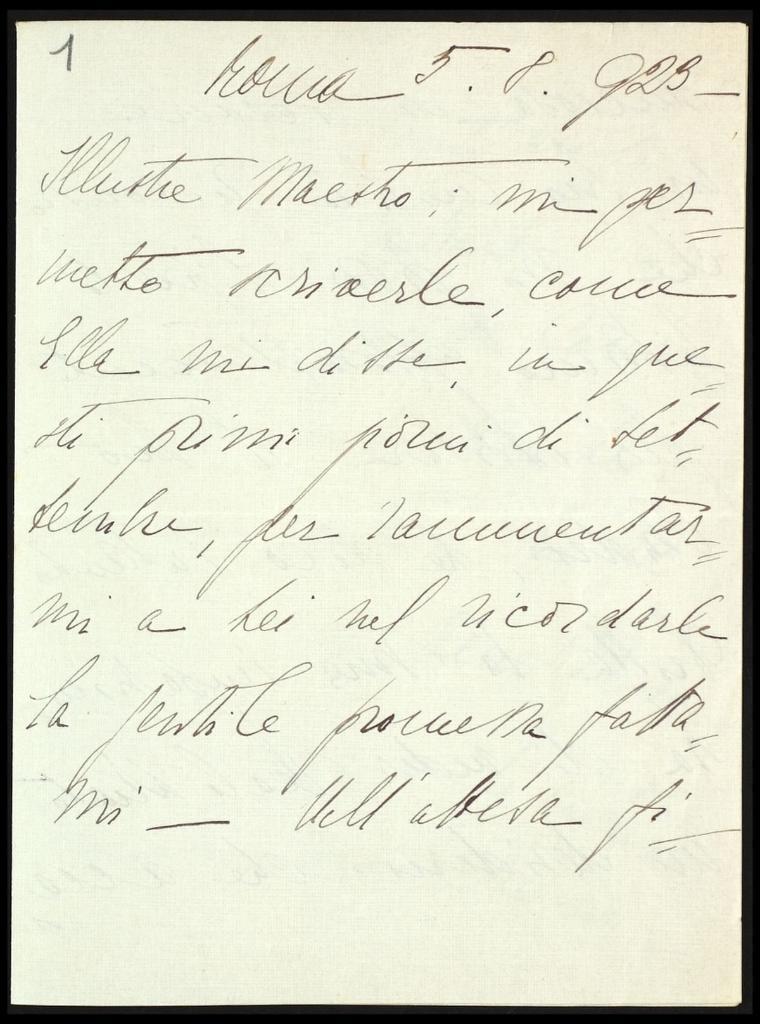 1
Roma 5. 8. 923 —
Illustre Maestro; mi per=
metto scriverle, come
Ella mi disse, in que=
sti primi giorni di set=
tembre, per rammentar=
mi a Lei nel ricordarle
la gentile promessa fatta=
mi — Nell'attesa fi=